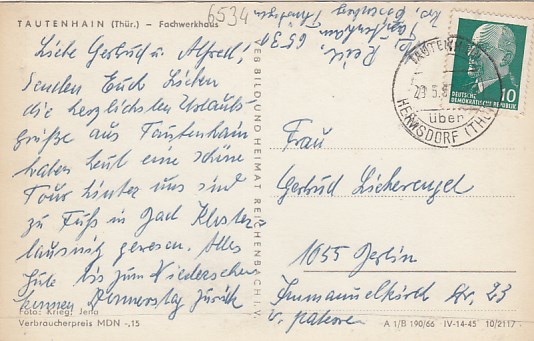 TAUTENHAIN (Thür.) – Fachwerkhaus
6534
Liebe Gertrud u. Alfred!
Senden Euch Lieben
die herzlichsten Urlaubs-
grüße aus Tautenhain
haben heut eine schöne
Tour hinter uns sind
zu Fuß in Bad Kloster-
lausnitz gewesen. Alles
Gute bis zum Wiedersehen
kommen Donnerstag zurück
Foto: Krieg, Jena
Verbraucherpreis MDN -,15
VEB BILD UND HEIMAT REICHENBACH I. V.
6534
Tautenhain
TAUTENHAIN
über
HERMSDORF (THÜR)
10
DEUTSCHE
DEMOKRATISCHE REPUBLIK
Frau
Gertrud
1055 Berlin
Immanuelkirch Str. 23
A 1/B 190/66 IV-14-45 10/2117